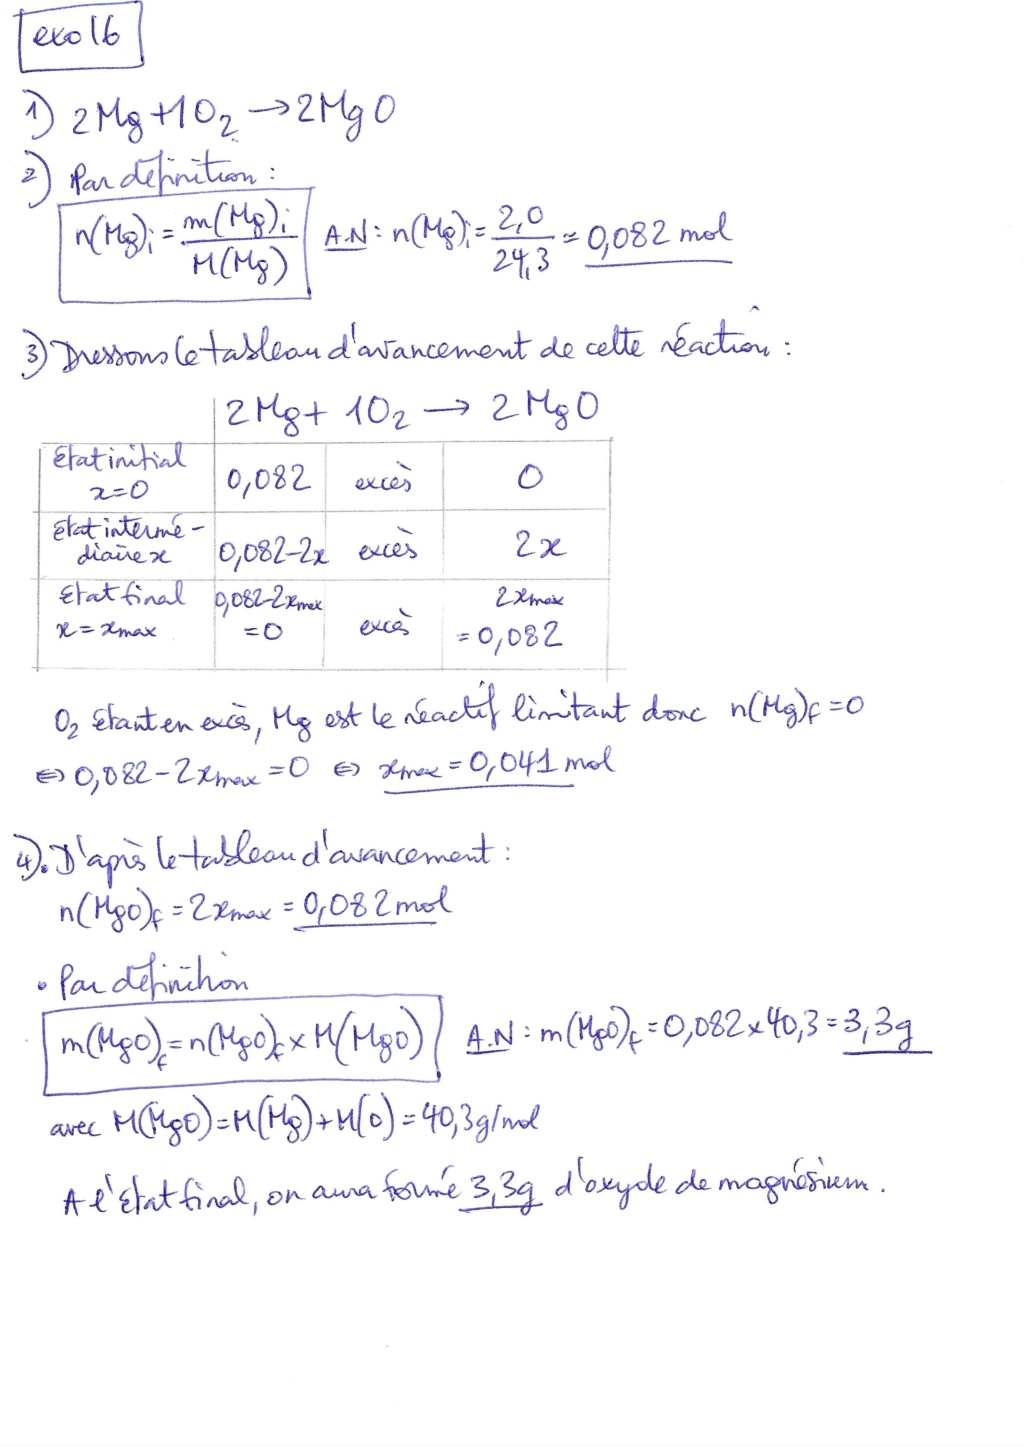 exo 16
1) 2Mg + 1O₂ → 2MgO
2) Par définition :
n(Mg)i = m(Mg)i / M(Mg) A.N : n(Mg)i = 2,0 / 24,3 ≃ 0,082 mol
3) Dressons le tableau d'avancement de cette réaction :
2Mg + 1O₂ → 2MgO
Etat initial x=0 0,082 excès 0
Etat intermé-
diaire x 0,082-2x excès 2x
Etat final 0,082-2xmax 2xmax
x = xmax =0 excès = 0,082
O₂ étant en excès, Mg est le réactif limitant donc n(Mg)f = 0
⇔ 0,082 - 2xmax = 0 ⇔ xmax = 0,041 mol
4). D'après le tableau d'avancement :
n(MgO)f = 2xmax = 0,082 mol
• Par définition
m(MgO)f = n(MgO)f x M(MgO) A.N : m(MgO)f = 0,082 x 40,3 = 3,3g
avec M(MgO) = M(Mg) + M(O) = 40,3g/mol
A l'état final, on aura formé 3,3g d'oxyde de magnésium.